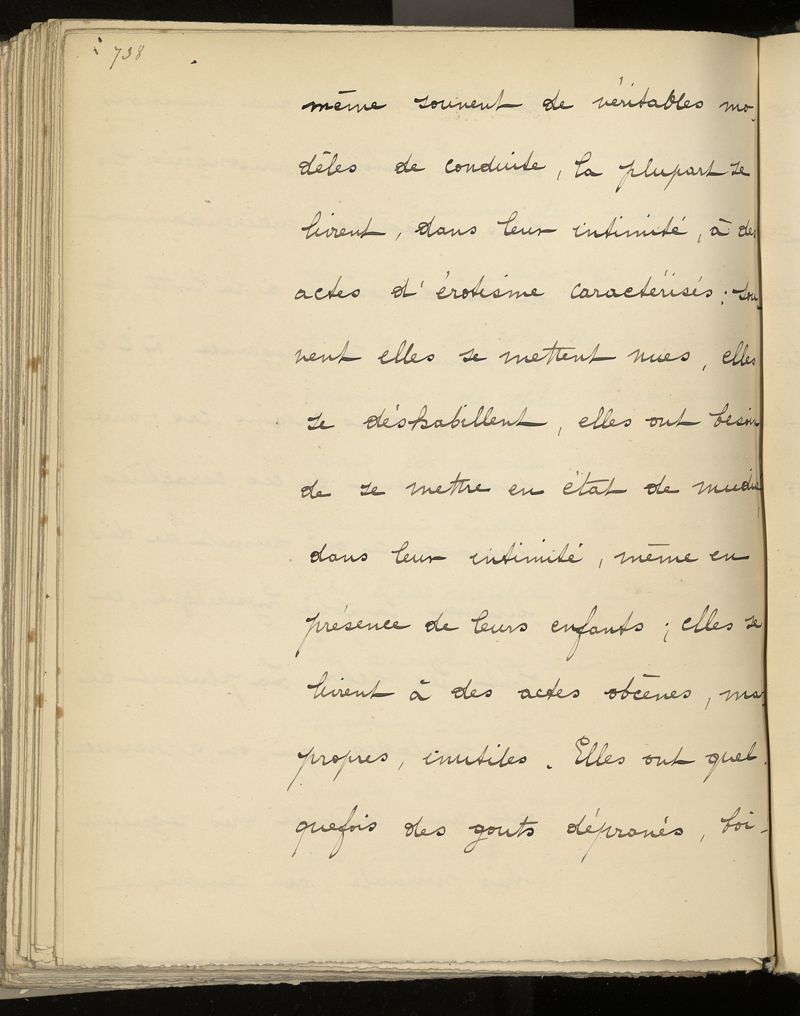 738
même souvent de véritables mo-
dèles de conduite, la plupart se
livrent, dans leur intimité, à des
actes d'érotisme caractérisés ; sou-
vent elles se mettent nues, elles
se déshabillent, elles ont besoin
de se mettre en état de nudité
dans leur intimité, même en
présence de leurs enfants ; elles se
livrent à des actes obcènes, mal
propres, inutiles. Elles ont quel-
quefois des gouts dépravés, boi-